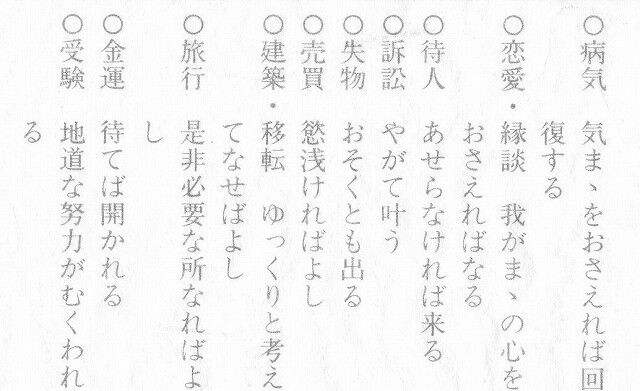 ○病気　気まゝをおさえれば回
復する
○恋愛・縁談　我がまゝの心を
おさえればなる
○待人　あせらなければ来る
○訴訟　やがて叶う
○失物　おそくとも出る
○売買　慾浅ければよし
○建築・移転　ゆっくりと考え
てなせばよし
○旅行　是非必要な所なればよ
し
○金運　待てば開かれる
○受験　地道な努力がむくわれ
る